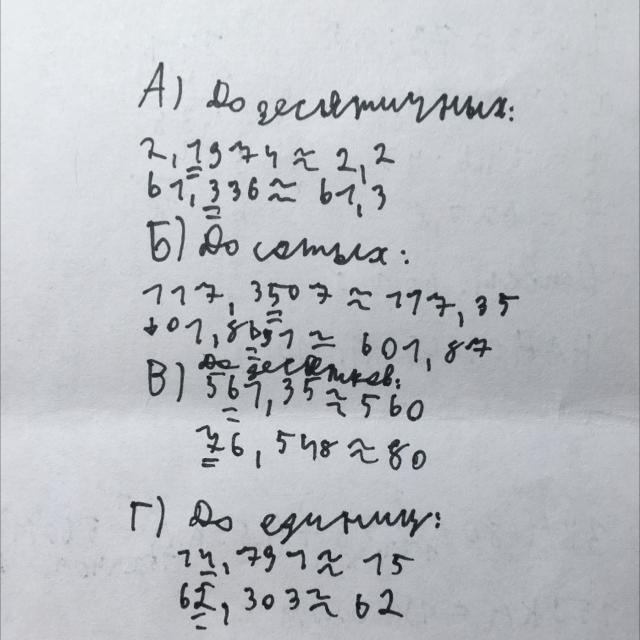 А) До десятичных:
2,1974 ≈ 2,2
61,336 ≈ 61,3
Б) До сотых:
117,3507 ≈ 117,35
601,8691 ≈ 601,87
В) До десятков:
561,35 ≈ 560
76,548 ≈ 80
Г) До единиц:
14,791 ≈ 15
62,303 ≈ 62